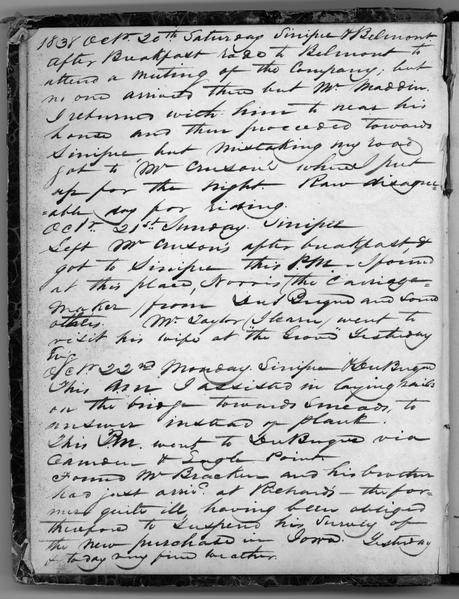 1838 Octr. 20th Saturday Sinipee & Belmont
After Breakfast rode to Belmont to
attend a meeting of the Company; but
no one arrived there but Mr Maddin.
I returned with him to near his
house and then proceeded towards
Sinipee, but mistaking my road
got to Mr when I put
up for the night Raw disagre-
=able day for riding.
Octr. 21st Sunday. Sinipee
Left Mr after breakfast &
got to Sinipee this P.M. I found
at this place, Norris (the Carriage-
Maker) from Du Buque and some
others. Mr Taylor (I learn) went to
visit his wife at "the Grove" Yesterday
Eve
Octr 22nd Monday. Sinipee & Du Buque
This Am I assisted in laying rails
on the bridge towards Smeads, to
answer instead of plank.
This P.M. went to Du Buque via
Camden & Eagle Point
Found Mr Bracken and his brother
had just arrivd. at Richards - the for-
mer quite ill, having been obliged
therefore to suspend his survey of
the new purchase in Iowa. Yesterday
& to day very fine weather.